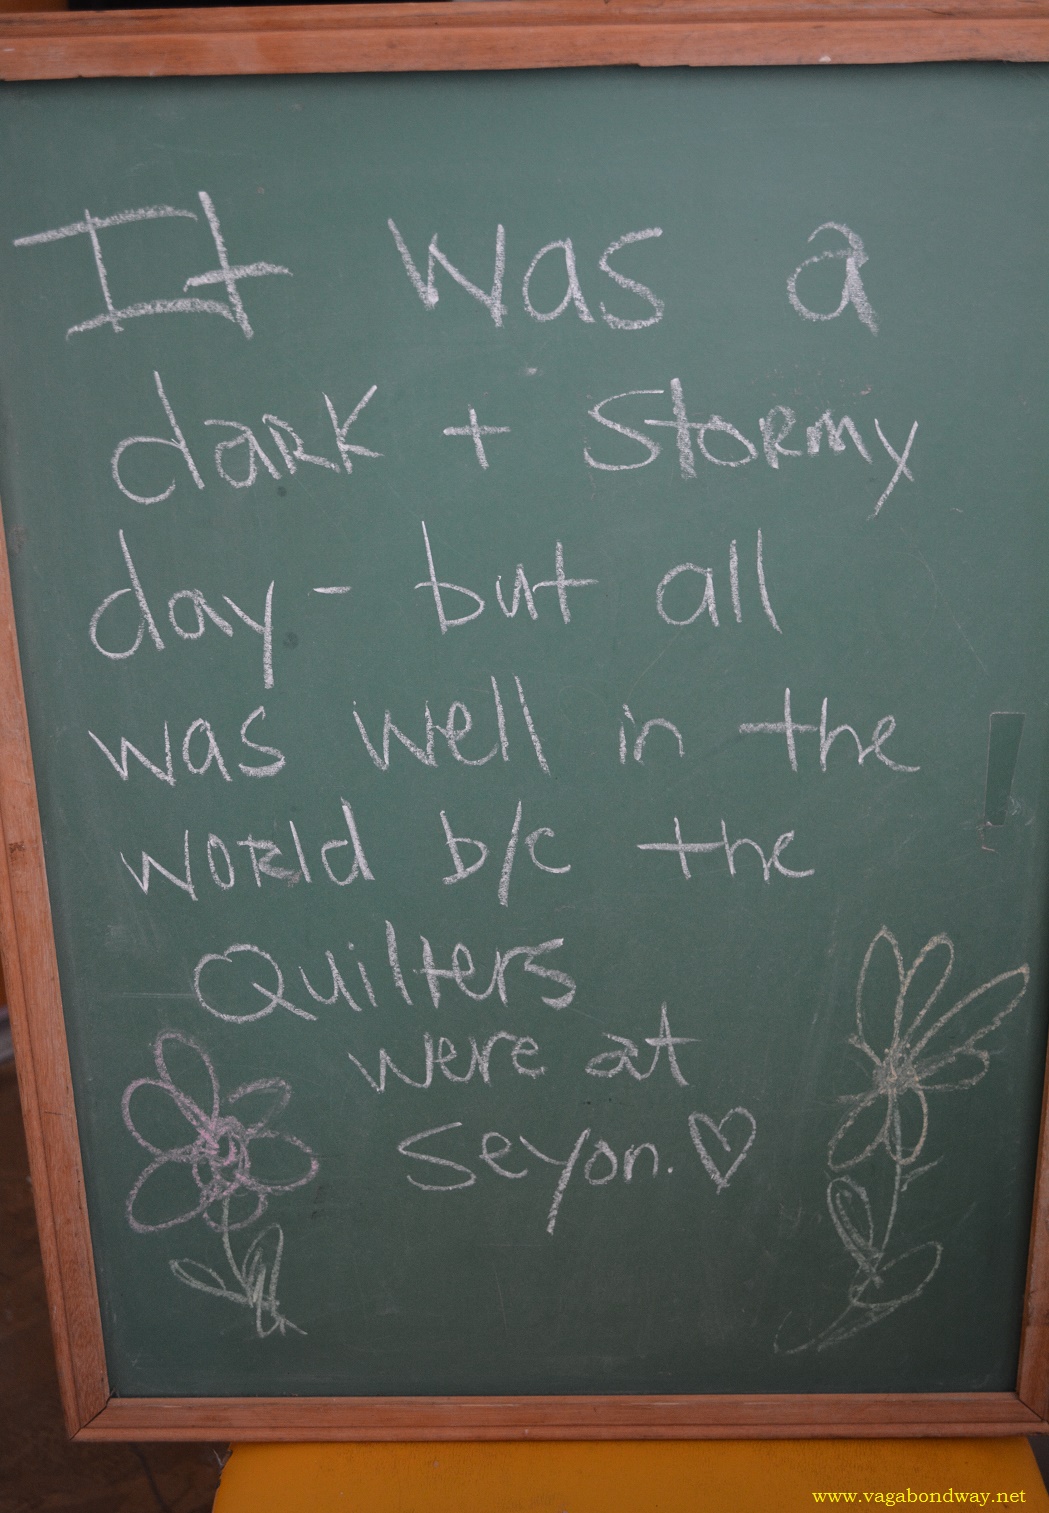 It was a
dark + stormy
day - but all
was well in the
world b/c the
Quilters
were at
Seyon. ♡
www.vagabondway.net